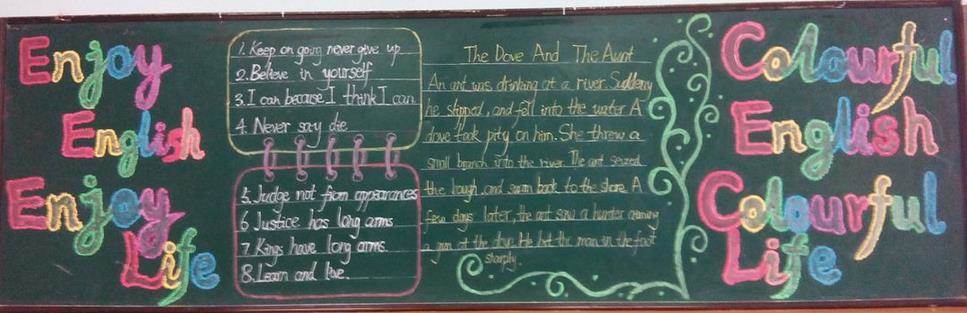 Enjoy
English
Enjoy
Life
1. Keep on going never give up
2. Believe in yourself
3. I can because I think I can
4. Never say die
5. Judge not from appearances
6 Justice has long arms
7. Kings have long arms.
8. Learn and live.
The Dove And The Aunt
An ant was drinking at a river. Suddenly
he slipped, and fell into the water A
dove took pity on him. She threw a
small branch into the river. The ant seized
the bough and swam back to the shore A
few days later, the ant saw a hunter aiming
a gun at the dove He bit the man in the foot
sharply.
Colourful
English
Colourful
Life